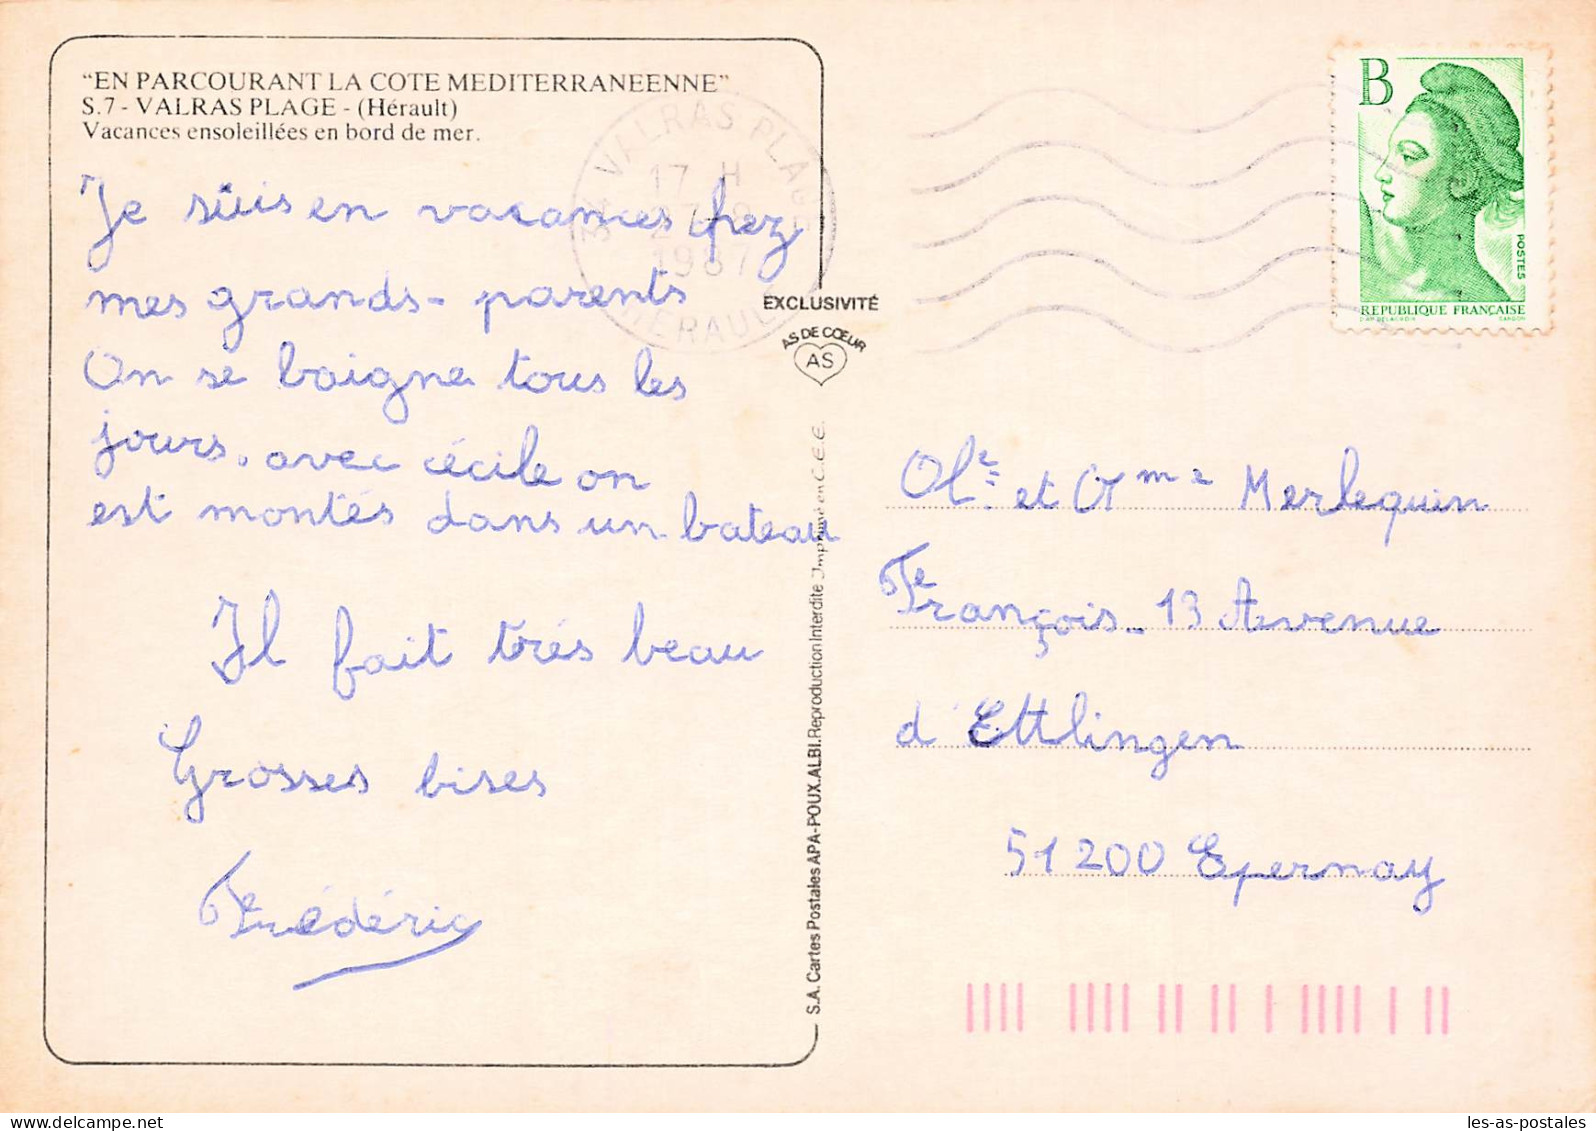 "EN PARCOURANT LA COTE MEDITERRANEENNE"
S.7 - VALRAS PLAGE - (Hérault)
Vacances ensoleillées en bord de mer.
Je suis en vacances chez
mes grands-parents
On se baigne tous les
jours. avec cécile on
est montés dans un bateau
Il fait très beau
Grosses bises
Frédéric
34 VALRAS PLAGE
17 H
1987
HERAULT
EXCLUSIVITÉ
AS DE CŒUR
AS
S.A. Cartes Postales APA-POUX. ALBI. Reproduction Interdite Imprimé en C.E.E.
B
POSTES
REPUBLIQUE FRANÇAISE
D'AP. DELACROIX GANDON
et Mme Merlequin
François - 13 Avenue
d'Ettlingen
51200 Epernay
les-as-postales
delcampe.net